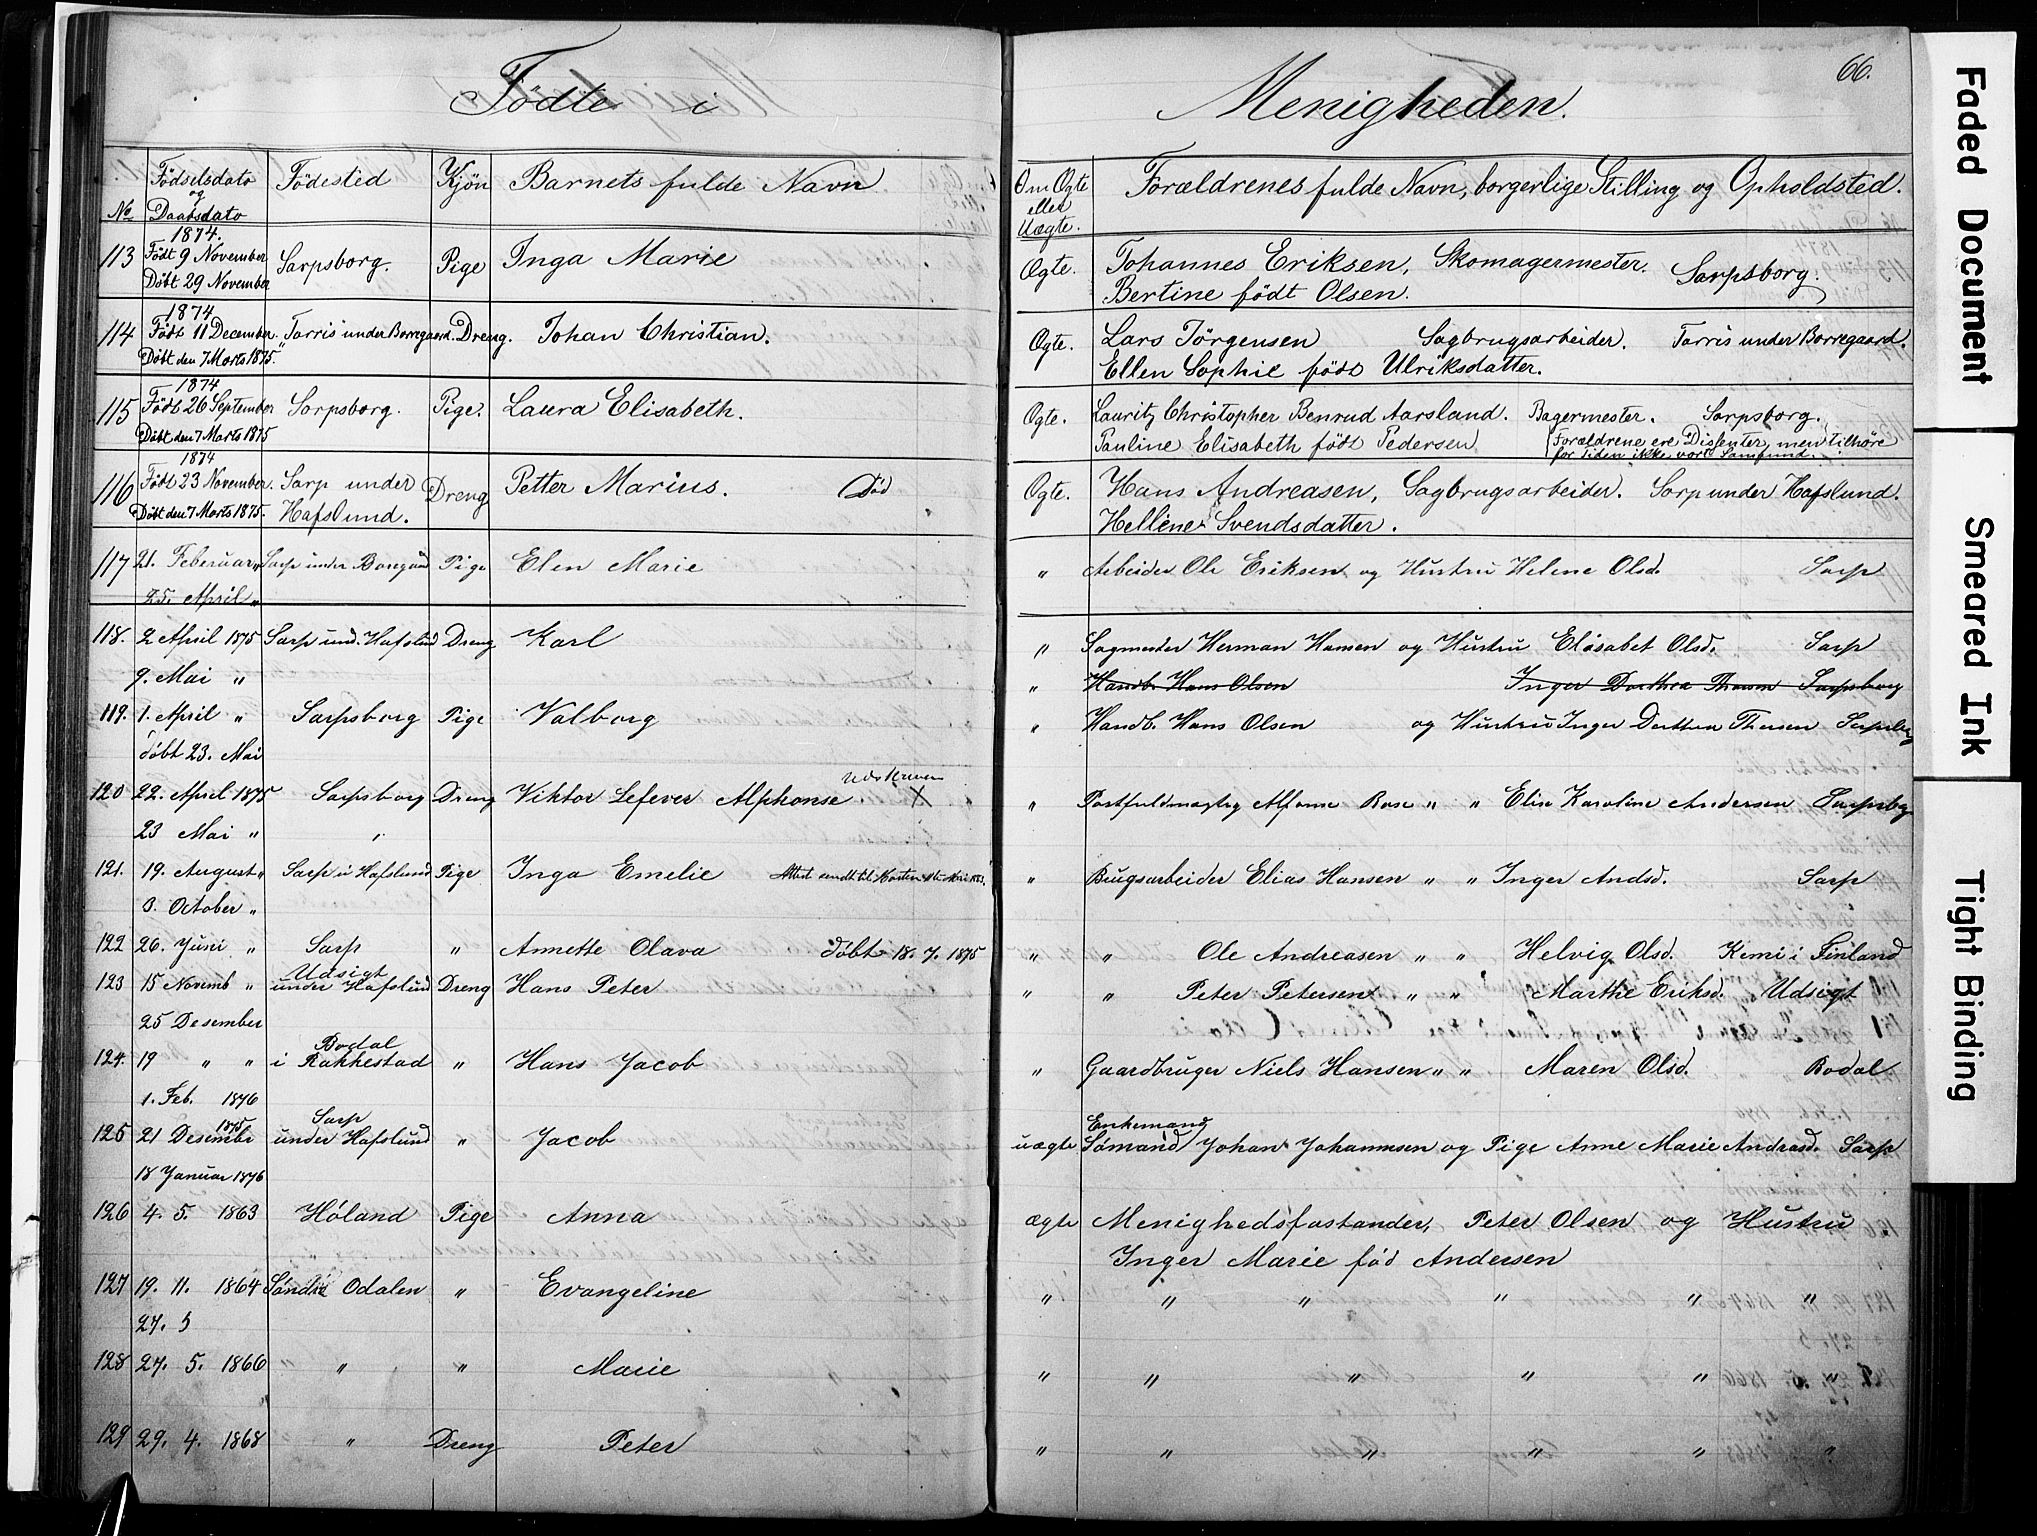 66.
Fødte i Menigheden.
No Fødselsdato og Daabsdato Fødested Kjøn Barnets fulde Navn Om Ogte eller Uægte. Forældrenes fulde Navn, borgerlige Stilling og Opholdsted.
1874.
113 Født 9 November Sarpsborg. Pige Inga Marie Ogte. Johannes Eriksen, Skomagermester. Sarpsborg.
Døbt 29 November Bertine født Olsen.
1874
114 Født 11 December. Tarris under Borregaard. Dreng. Johan Christian. Ogte. Lars Jörgensen Sagbrugsarbeider. Tarris under Borregaard.
Døbt den 7 Marts 1875. Ellen Sophie født Ulriksdatter.
1874
115 Født 26 September Sarpsborg. Pige. Laura Elisabeth. Ogte. Lauritz Christopher Benrud Aarsland. Bagermester. Sarpsborg.
Døbt den 7 Marts 1875 Pauline Elisabeth født Pedersen (Forældrene ere Dissenter, men tilhøre
for tiden ikke vort Samfund.
1874
116 Født 23 November. Sarp under Hafslund. Dreng Petter Marius. Død Ogte. Hans Andreasen, Sagbrugsarbeider. Sarp under Hafslund.
Døbt den 7 Marts 1875. Helléne Svendsdatter.
117 21. Februar " Sarp under Boregaard Pige Elen Marie " Arbeider Ole Eriksen og Hustru Helene Olsd. Sarp
25. April "
118. 2 April 1875 Sarp und. Hafslund Dreng Karl " Sagmester Herman Hansen og Hustru Elisabet Olsd. Sarp
9. Mai " " Handb. Hans Olsen Inger Dorthea Thorsen Sarpsborg
119. 1. April " Sarpsborg Pige Valborg " Handb. Hans Olsen og Hustru Inger Dorthea Thorsen Sarpsborg
døbt 23. Mai
Udskreven
120 22. April 1875 Sarpsborg Dreng Viktor Lefever Alphonse X " Postfuldmægtig Alfonse Rose " " Elise Karoline Andersen Sarpsborg
23 Mai "
121. 19. August " Sarp u Hafslund Pige Inga Emelie Attest sendt til " Brugsarbeider Elias Hansen " " Inger Andsd. Sarp
3. October "
122 26. Juni " Sarp " Annette Olava døbt 18. 7. 1875 " " Ole Andreasen " " Helvig Olsd. Kemi i Finland
123 15 Novemb " Udsigt under Hafslund Dreng Hans Peter " " Peter Petersen " " Marthe Eriksd. Udsigt
25 Desember
124. 19 " " Bodal i Rakkestad " Hans Jacob " Gaardbruger Niels Hansen " " Maren Olsd. Bodal
1. Feb. 1876
125 21 Desembr 1875 Sarp under Hafslund " Jacob uægte Enkemand Sømand Johan Johannsen og Pige Anne Marie Andrasd. Sarp
18 Januar 1876
126 4. 5. 1863 Høland Pige Anna ægte Menighedsfostander, Peter Olsen og Hustru
Inger Marie fød Andersen
127 19. 11. 1864 Søndre Odalen " Evangeline " " " " " "
27. 5
128 27. 5. 1866 " " " Marie " " " " " "
129 29. 4. 1868 " Dreng Peter " " " " " "
Faded Document
Smeared Ink
Tight Binding